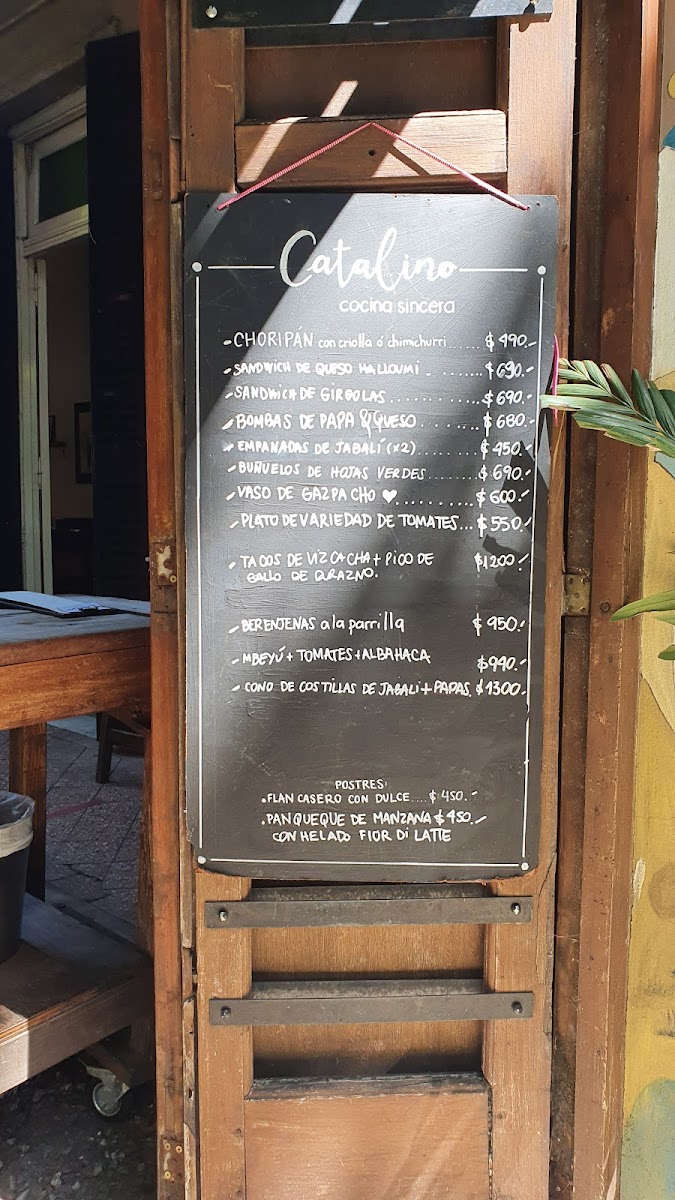 Catalino
cocina sincera
- CHORIPÁN con criolla ó chimichurri...... $ 490.-
- SANDWICH DE QUESO HALLOUMI . ....... $ 690.-
- SANDWICH DE GIRGOLAS ............ $ 690.-
- BOMBAS DE PAPA Y QUESO ........ $ 680.-
- EMPANADAS DE JABALÍ (x2)........ $ 450.-
- BUÑUELOS DE HOJAS VERDES ....... $ 690.-
- VASO DE GAZPACHO ♥ .......... $ 600.-
- PLATO DE VARIEDAD DE TOMATES... $ 550.-
- TACOS DE VIZCACHA + PICO DE $1200.-
GALLO DE DURAZNO.
- BERENJENAS a la parrilla $ 950.-
- MBEYÚ + TOMATES + ALBAHACA $940.-
- CONO DE COSTILLAS DE JABALI + PAPAS. $1300.-
POSTRES:
• FLAN CASERO CON DULCE.... $ 450.-
• PANQUEQUE DE MANZANA $ 450.-
CON HELADO FIOR DI LATTE